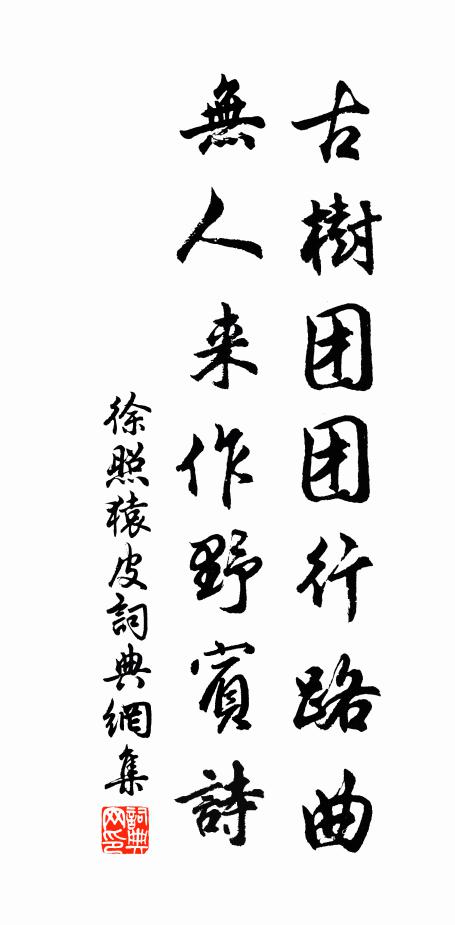 古樹团团行路曲
無人来作野賓詩
徐照猿皮詞典網集
詞典网印